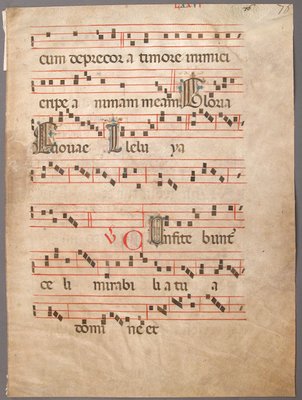 LXXVI 75
cum deprecor a timore inimici
eripe a nimam meam Gloria
Enouae Llelu ya
V Onfite bunt
ce li mirabi li a tu a
domi ne et